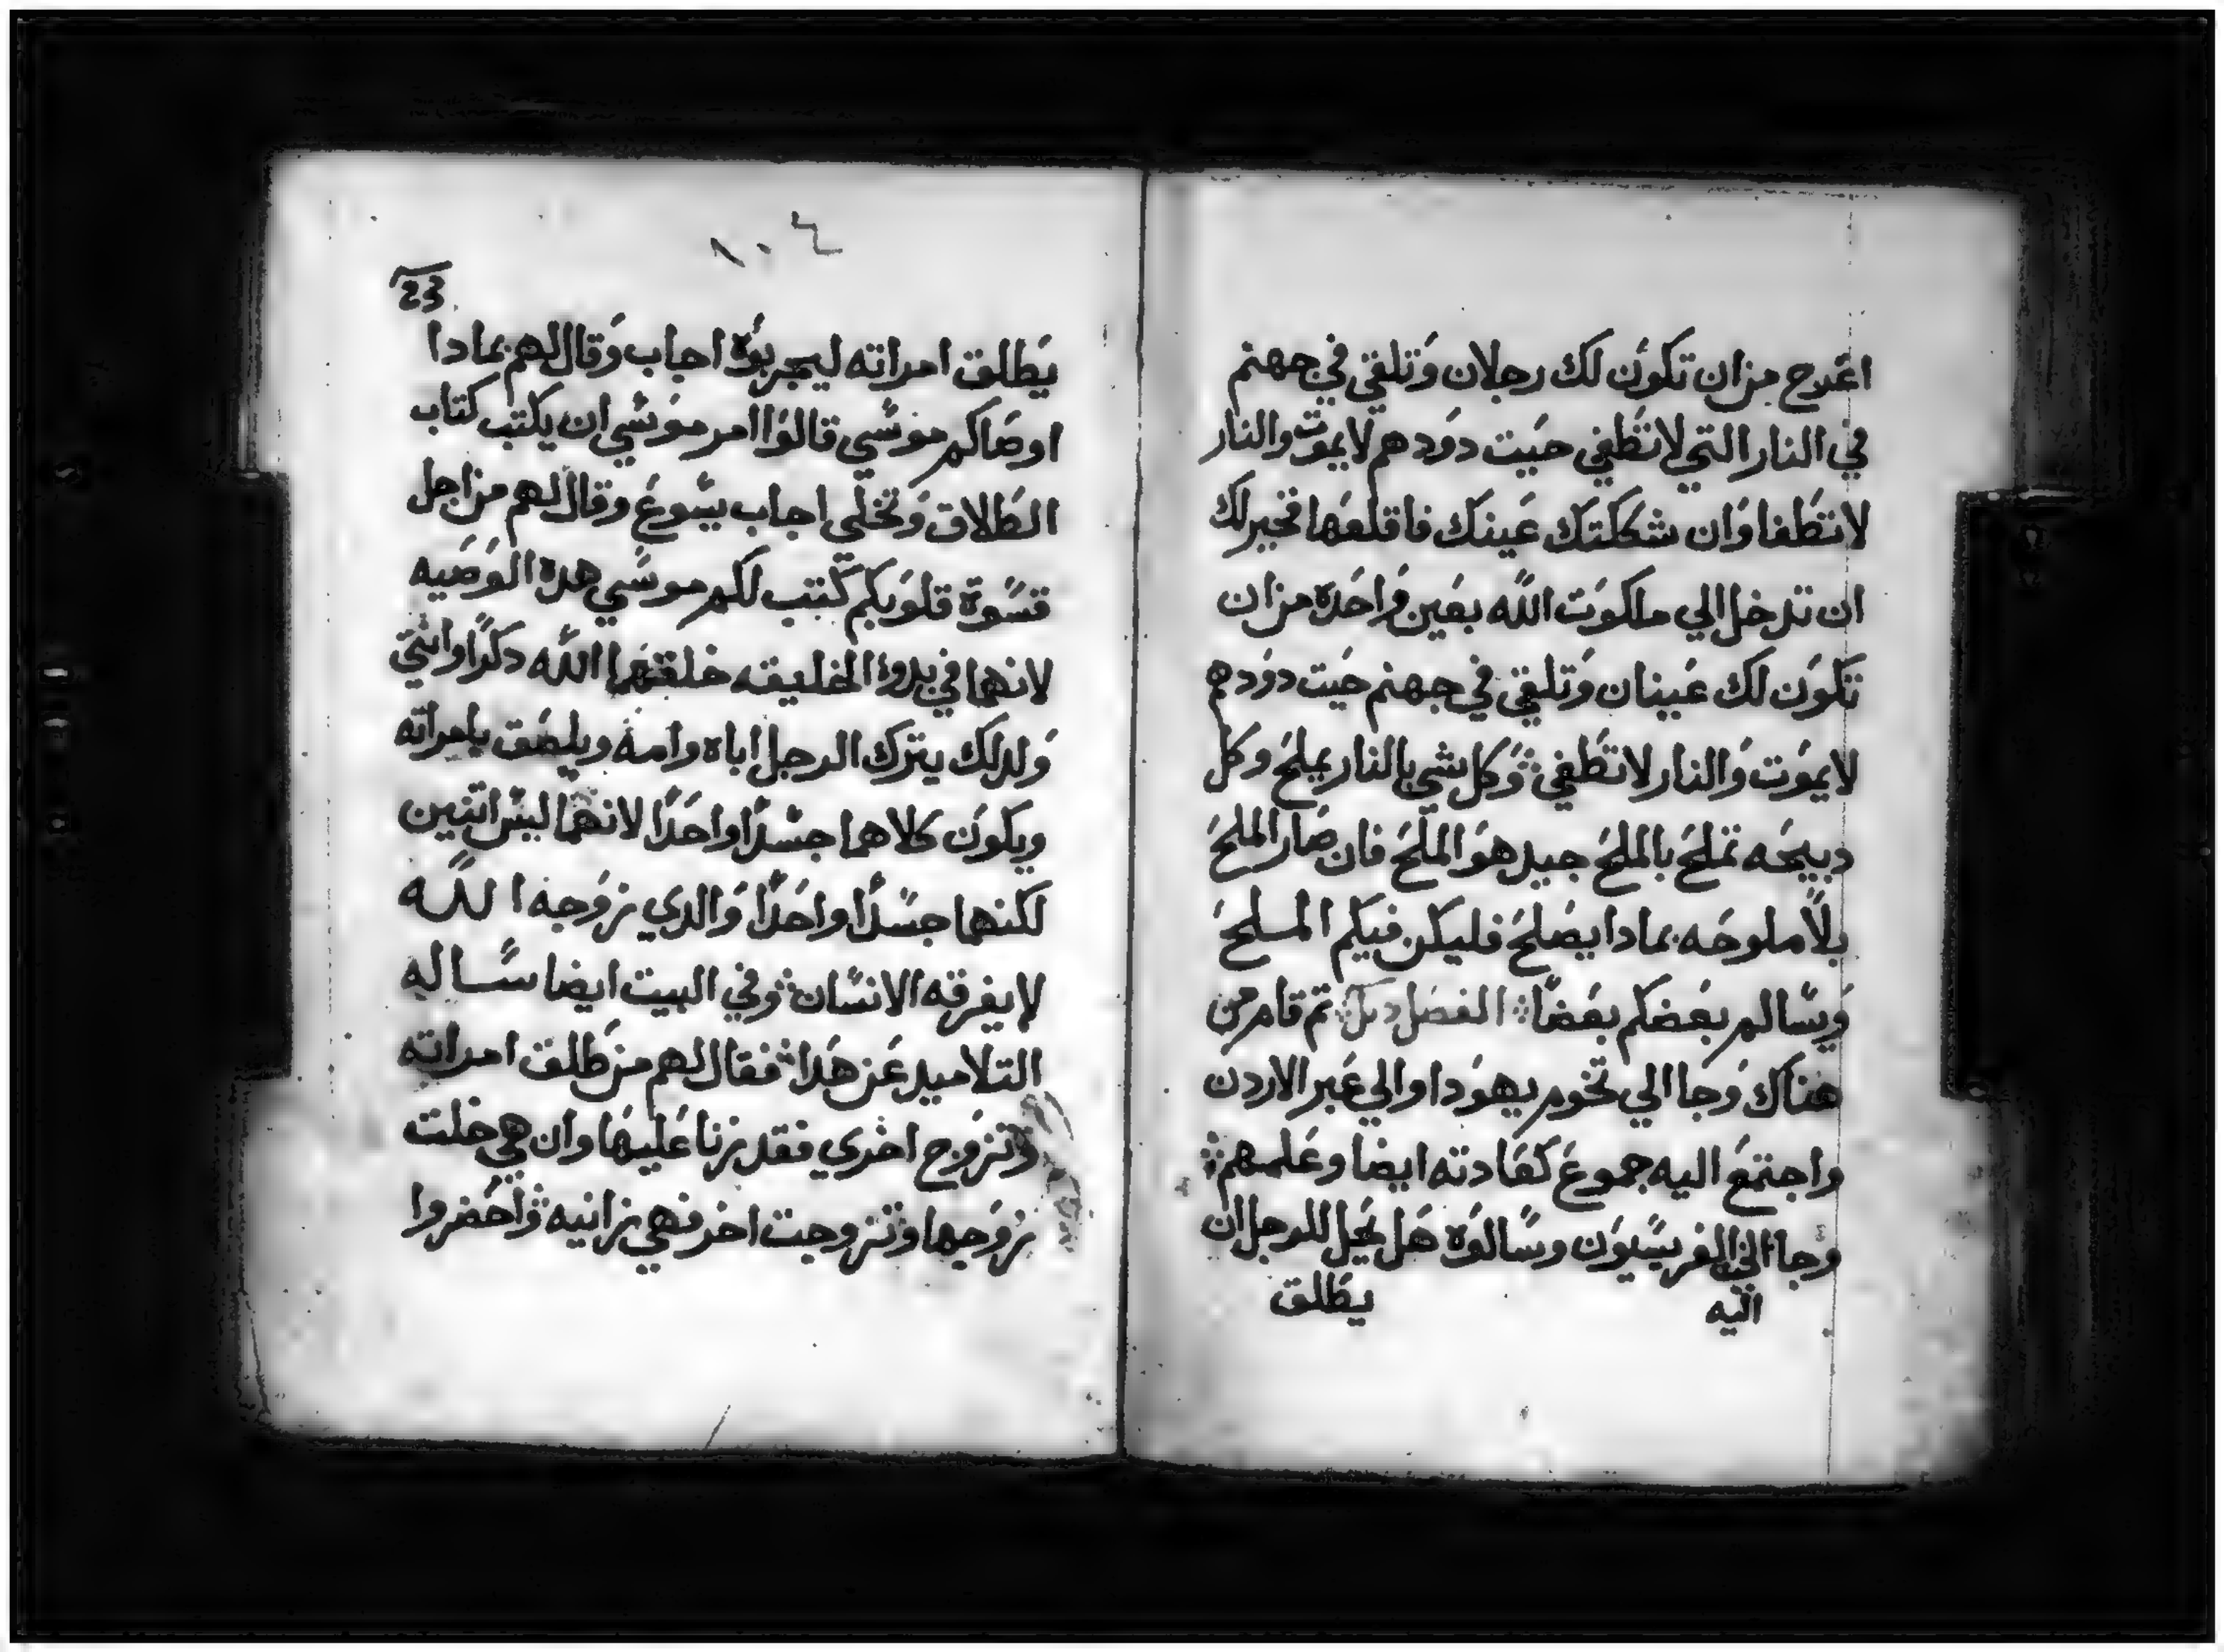 اعرج من ان تكون لك رجلان وتلقي في جهنم
في النار التي لا تطفي حيت دودهم لا يموت والنار
لا تطفا وان شككتك عينك فاقلعها فخير لك
ان تدخل الي ملكوت الله بعين واحدة من ان
تكون لك عينان وتلقي في جهنم حيت دودهم
لا يموت والنار لا تطفي وكل شي بالنار يملح وكل
دبيحه تملح بالملح جيد هو الملح فان صار الملح
بلا ملوحه بمادا يصلح فليكن فيكم الملح
ويسالم بعضكم بعضا الفصل تم قام من
هناك وجا الي تخوم يهودا والي عبر الاردن
واجتمع اليه جموع كعادته ايضا وعلمهم
وجا الفريسيون وسالوه هل يحل للرجل ان
اليه يطلق
١٠٤
يطلق امراته ليجربوه اجاب وقال لهم بمادا
اوصاكم موسي قالوا امر موسي ان يكتب كتاب
الطلاق وتخلي اجاب يسوع وقال لهم من اجل
قسوة قلوبكم كتب لكم موسي هده الوصيه
لانهما في بدو الخليقه خلقهما الله دكرا وانتي
ولدلك يترك الرجل اباه وامه ويلصق بامراته
ويكون كلاهما جسدا واحدا لانهما ليس اتنين
لكنهما جسدا واحدا والدي زوجه الله
لا يفرقه الانسان وفي البيت ايضا ساله
التلاميد عن هدا فقال لهم من طلق امراته
وتزوج اخري فقد زنا عليها وان هي خلت
زوجها وتزوجت اخر فهي زانيه واحضروا